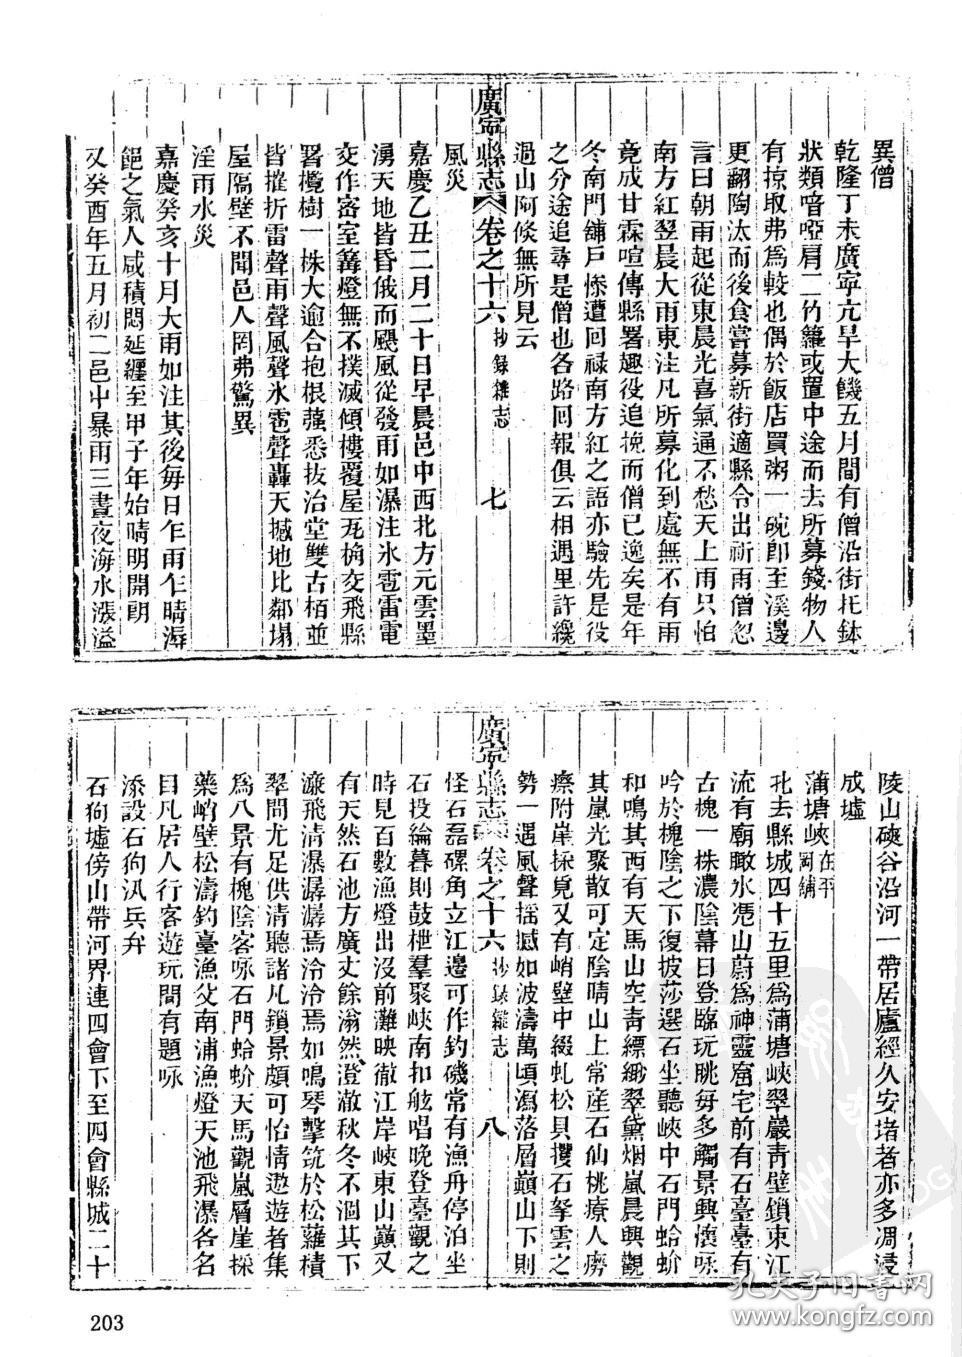 異僧
乾隆丁未廣寧亢旱大饑五月間有僧沿街托鉢
狀類喑啞肩二竹籮或置中途而去所募錢物人
有掠取弗爲較也偶於飯店買粥一碗卽至溪邊
更翻陶汰而後食嘗募新街適縣令出祈雨僧忽
言曰朝雨起從東晨光喜氣通不愁天上雨只怕
南方紅翌晨大雨東注凡所募化到處無不有雨
竟成甘霖喧傳縣署趣役追挽而僧已逸矣是年
冬南門鋪戶慘遭回祿南方紅之語亦驗先是役
之分途追尋是僧也各路回報俱云相遇里許纔
過山阿倏無所見云
廣寧縣志 卷之十六 抄錄雜志 七
風災
嘉慶乙丑二月二十日早晨邑中西北方元雲墨
湧天地皆昏俄而颶風從發雨如瀑注氷雹雷電
交作密室篝燈無不撲滅傾樓覆屋瓦桷交飛縣
署欖樹一株大逾合抱根蔃悉拔治堂雙古栢並
皆摧折雷聲雨聲風聲氷雹聲轟天撼地比鄰塌
屋隔壁不聞邑人罔弗驚異
淫雨水災
嘉慶癸亥十月大雨如注其後每日乍雨乍晴溽
鋁之氣人咸積悶延纒至甲子年始晴明開朗
又癸酉年五月初二邑中暴雨三晝夜海水漲溢
陵山硤谷沿河一帶居廬經久安堵者亦多凋浸
成墟
蒲塘峽在平岡鋪
北去縣城四十五里爲蒲塘峽翠巖靑壁鎖東江
流有廟瞰水憑山蔚爲神靈窟宅前有石臺臺有
古槐一株濃陰幕日登臨玩眺每多觸景興懷咏
吟於槐陰之下復坡莎選石坐聽峽中石門蛤蚧
和鳴其西有天馬山空靑縹緲翠黛烟嵐晨興觀
其嵐光聚散可定陰晴山上常産石仙桃療人癆
瘵附崖採覓又有峭壁中綴虬松具攫石拏雲之
勢一遇風聲搖撼如波濤萬頃瀉落層巓山下則
廣寧縣志 卷之十六 抄錄雜志 八
怪石磊磥角立江邊可作釣磯常有漁舟停泊坐
石投綸暮則鼓枻羣聚峽南扣舷唱晚登臺觀之
時見百數漁燈出沒前灘映徹江岸峽東山巓又
有天然石池方廣丈餘滃然澄澈秋冬不涸其下
濂飛淸瀑潺潺焉泠泠焉如鳴琴擊筑於松蘿積
翠間尤足供淸聽諸凡鎖景頗可怡情遨遊者集
爲八景有槐陰客咏石門蛤蚧天馬觀嵐層崖採
藥峭壁松濤釣臺漁父南浦漁燈天池飛瀑各名
目凡居人行客遊玩間有題咏
添設石狗汛兵弁
石狗墟傍山帶河界連四會下至四會縣城二十
203
孔夫子旧书网
www.kongfz.com